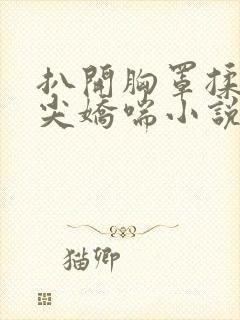 扒開胸罩揉
尖嬌喘小說
猫卿